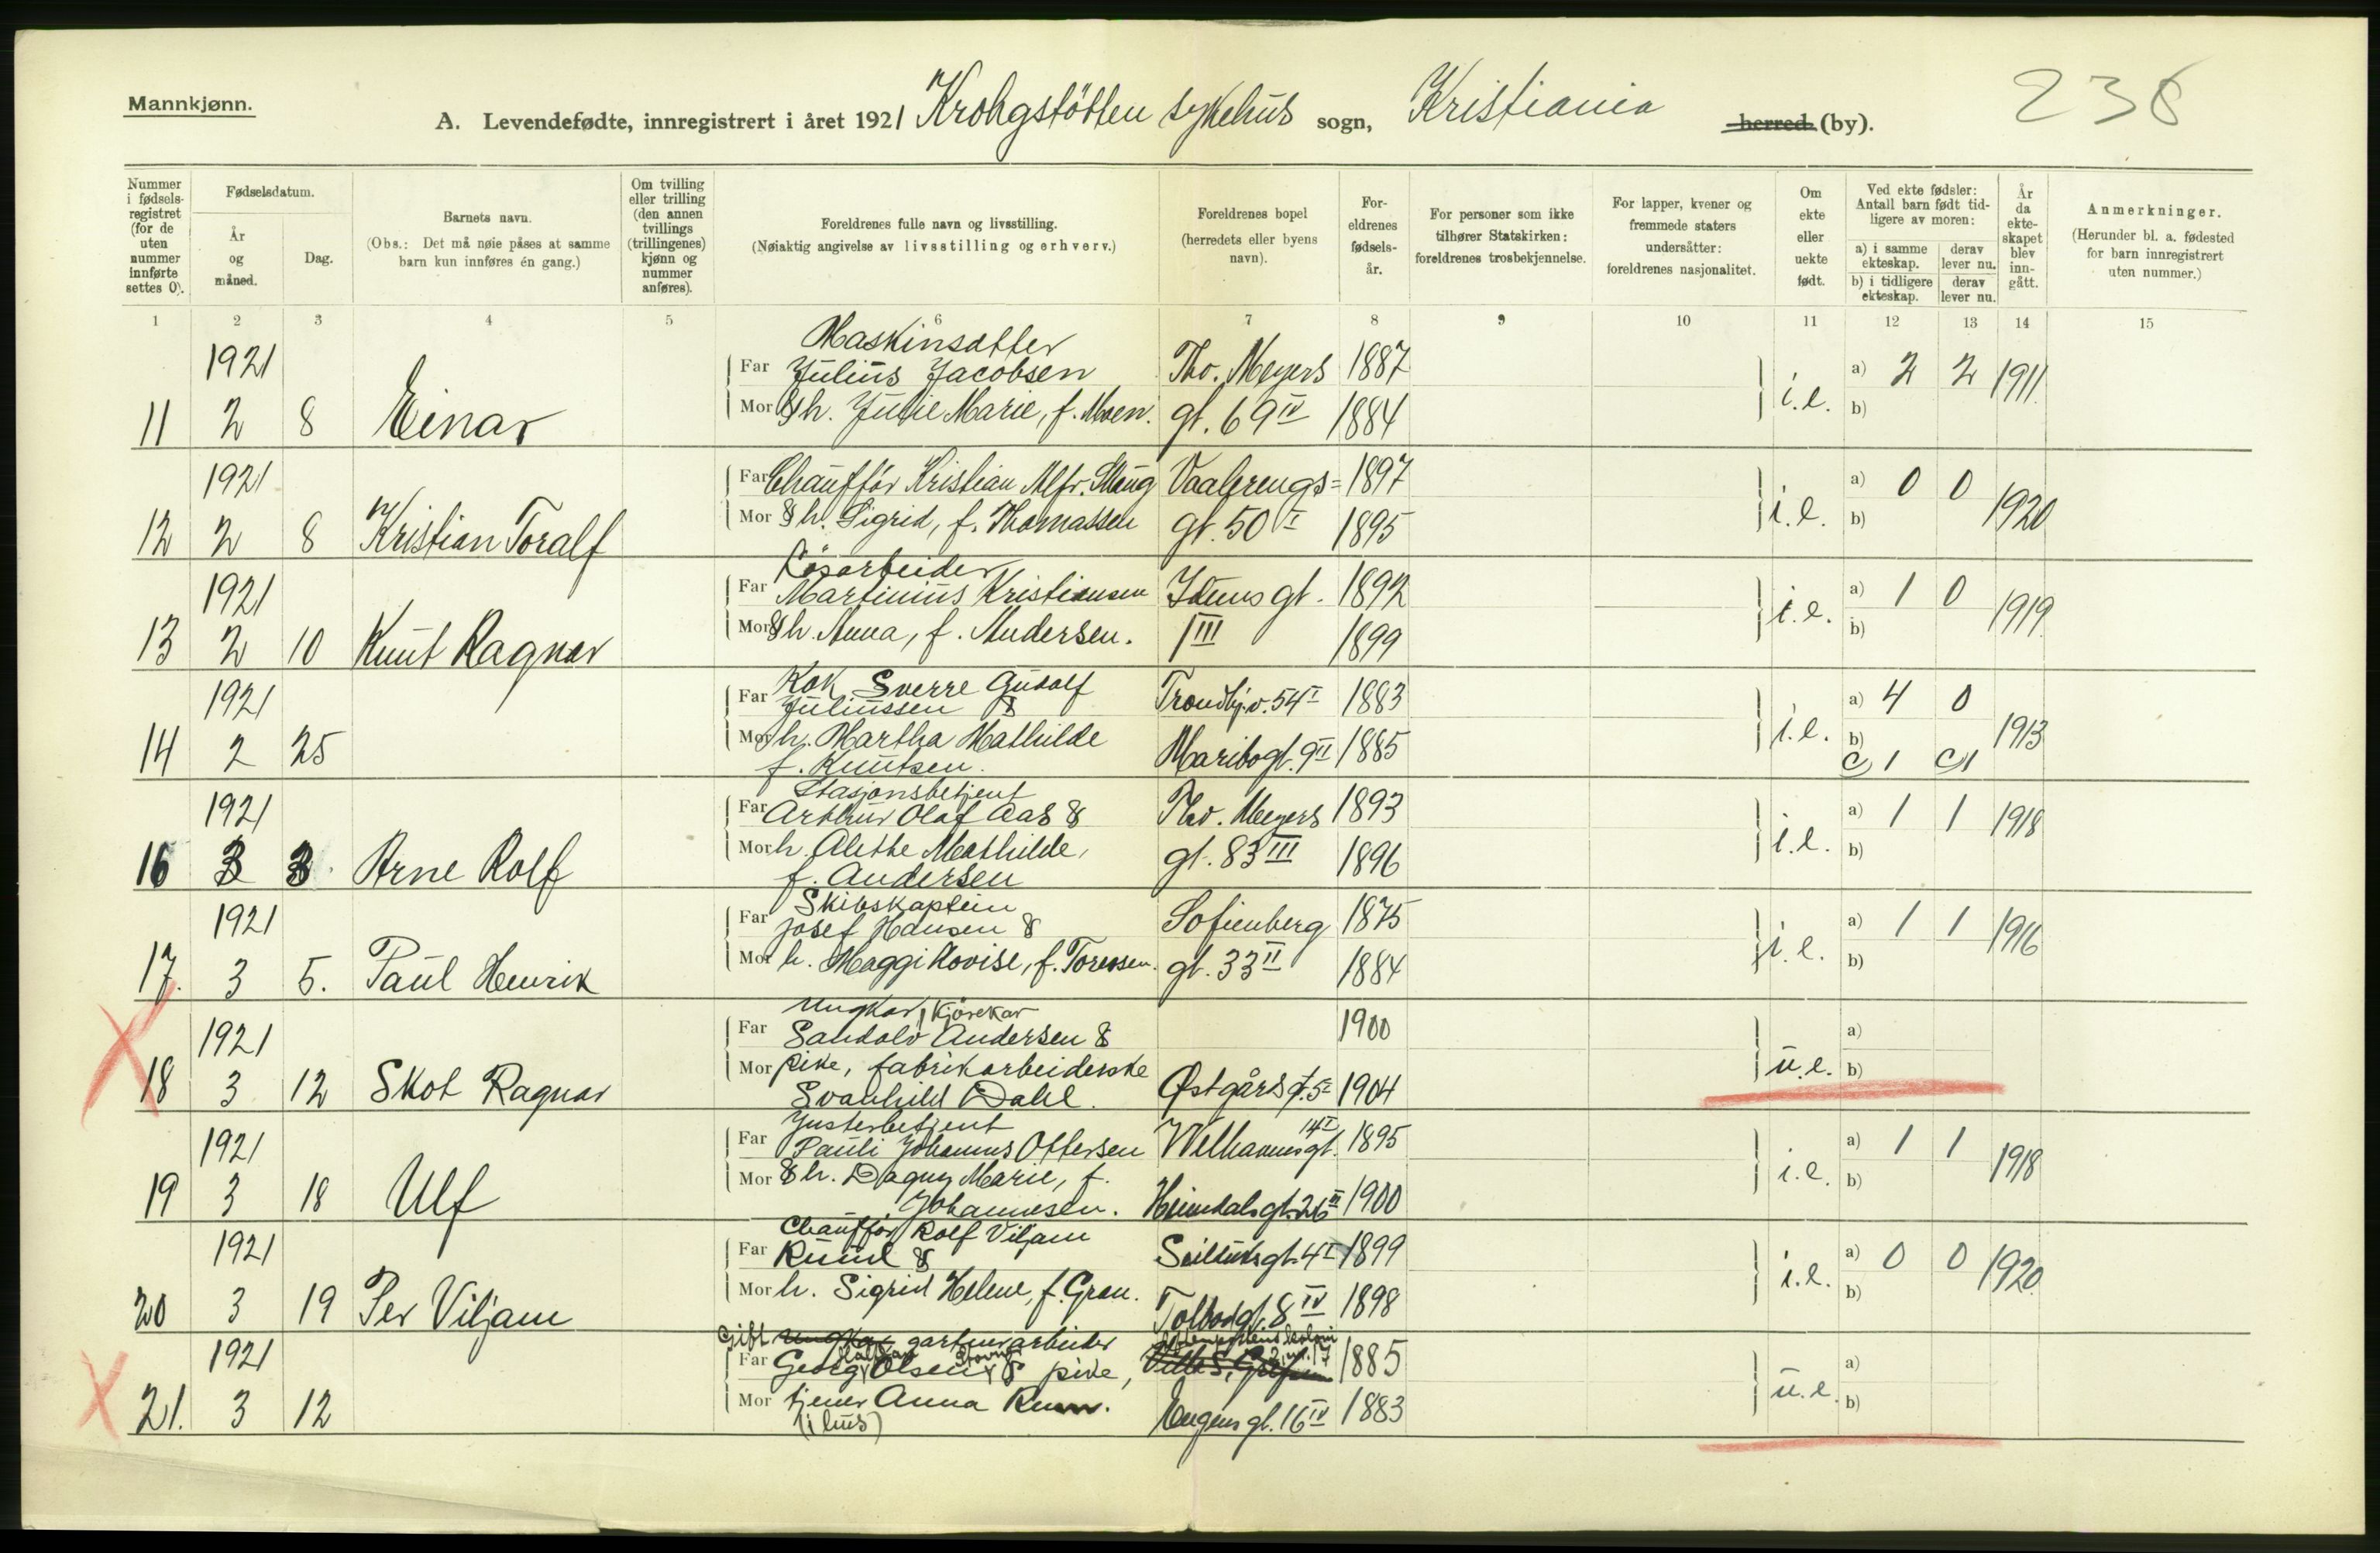 Mannkjønn.
A. Levendefødte, innregistrert i året 1921 Krohgstøtten sykehus sogn, Kristiania herred (by).
Nummer i fødselsregistret (for de uten nummer innførte settes 0).
Fødselsdatum.
År og måned.
Dag.
Barnets navn.
(Obs.: Det må nøie påses at samme barn kun innføres én gang.)
Om tvilling eller trilling (den annen tvillings (trillingenes) kjønn og nummer anføres).
Foreldrenes fulle navn og livsstilling.
(Nøiaktig angivelse av livsstilling og erhverv.)
Foreldrenes bopel (herredets eller byens navn).
Foreldrenes fødselsår.
For personer som ikke tilhører Statskirken: foreldrenes trosbekjennelse.
For lapper, kvener og fremmede staters undersåtter: foreldrenes nasjonalitet.
Om ekte eller uekte født.
Ved ekte fødsler: Antall barn født tidligere av moren:
a) i samme ekteskap. derav lever nu.
b) i tidligere ekteskap. derav lever nu.
År da ekteskapet blev inngått.
Anmerkninger.
(Herunder bl. a. fødested for barn innregistrert uten nummer.)
1 2 3 4 5 6 7 8 9 10 11 12 13 14 15
Maskinsætter
1921 Far Julius Jacobsen Thv. Meyers 1887 a) 2 2 1911
11 2 8 Einar Mor & h. Julie Marie, f. Moen. gt. 69 IV 1884 i.e. b)
1921 Far Chauffør Kristian Alfr. Vaalerengs- 1897 a) 0 0 1920
12 2 8 Kristian Toralf Mor & h. Sigrid, f. Thomassen gt. 50 I 1895 i.e. b)
Løsarbeider
1921 Far Martinius Kristiansen Iduns gt. 1892 a) 1 0 1919
13 2 10 Knut Ragnar Mor & h. Anna, f. Andersen. 1 III 1899 i.e. b)
Kok Sverre Gudolf
1921 Far Juliussen & Trondhj.v. 54 I 1883 a) 4 0 1913
14 2 25 Mor h. Martha Mathilde Maribogt. 9 II 1885 i.e. b)
f. Knutsen. c) 1 c) 1
Stasjonsbetjent
1921 Far Arthur Olaf Aas & Thv. Meyers 1893 a) 1 1 1918
16 3 3 Arne Rolf Mor h. Alethe Mathilde, gt. 83 III 1896 i.e. b)
f. Andersen
Skibskaptein
1921 Far Josef Hansen & Sofienberg 1875 a) 1 1 1916
17. 3 5. Paul Henrik Mor h. Maggi Lovise, f. Toressen. gt. 33 II 1884 i.e. b)
Ungkar, kjørekar
1921 Far Sandolv Andersen & 1900 a)
18 3 12 Skot Ragnar Mor pike, fabrikarbeiderske u.e. b)
Svanhild Dahl. Østgårds gt. 5 I 1904
Justerbetjent 14 I
1921 Far Pauli Johannes Ottersen Welhavens gt. 1895 a) 1 1 1918
19 3 18 Ulf Mor & h. Dagny Marie, f. i.e. b)
Johannesen. Heimdals gt. 26 III 1900
Chauffør Rolf Viljam
1921 Far Ruud & Seilduks gt. 4 I 1899 a) 0 0 1920
20 3 19 Per Viljam Mor h. Sigrid Helene, f. Gran. Tolbodgt. 8 IV 1898 i.e. b)
Gift Ungkar gartnerarbeider
1921 Far Georg Olsen & pike, 1885 a)
21. 3 12 Mor tjener Anna Eugens gt. 16 IV 1883 u.e. b)
(i hus)